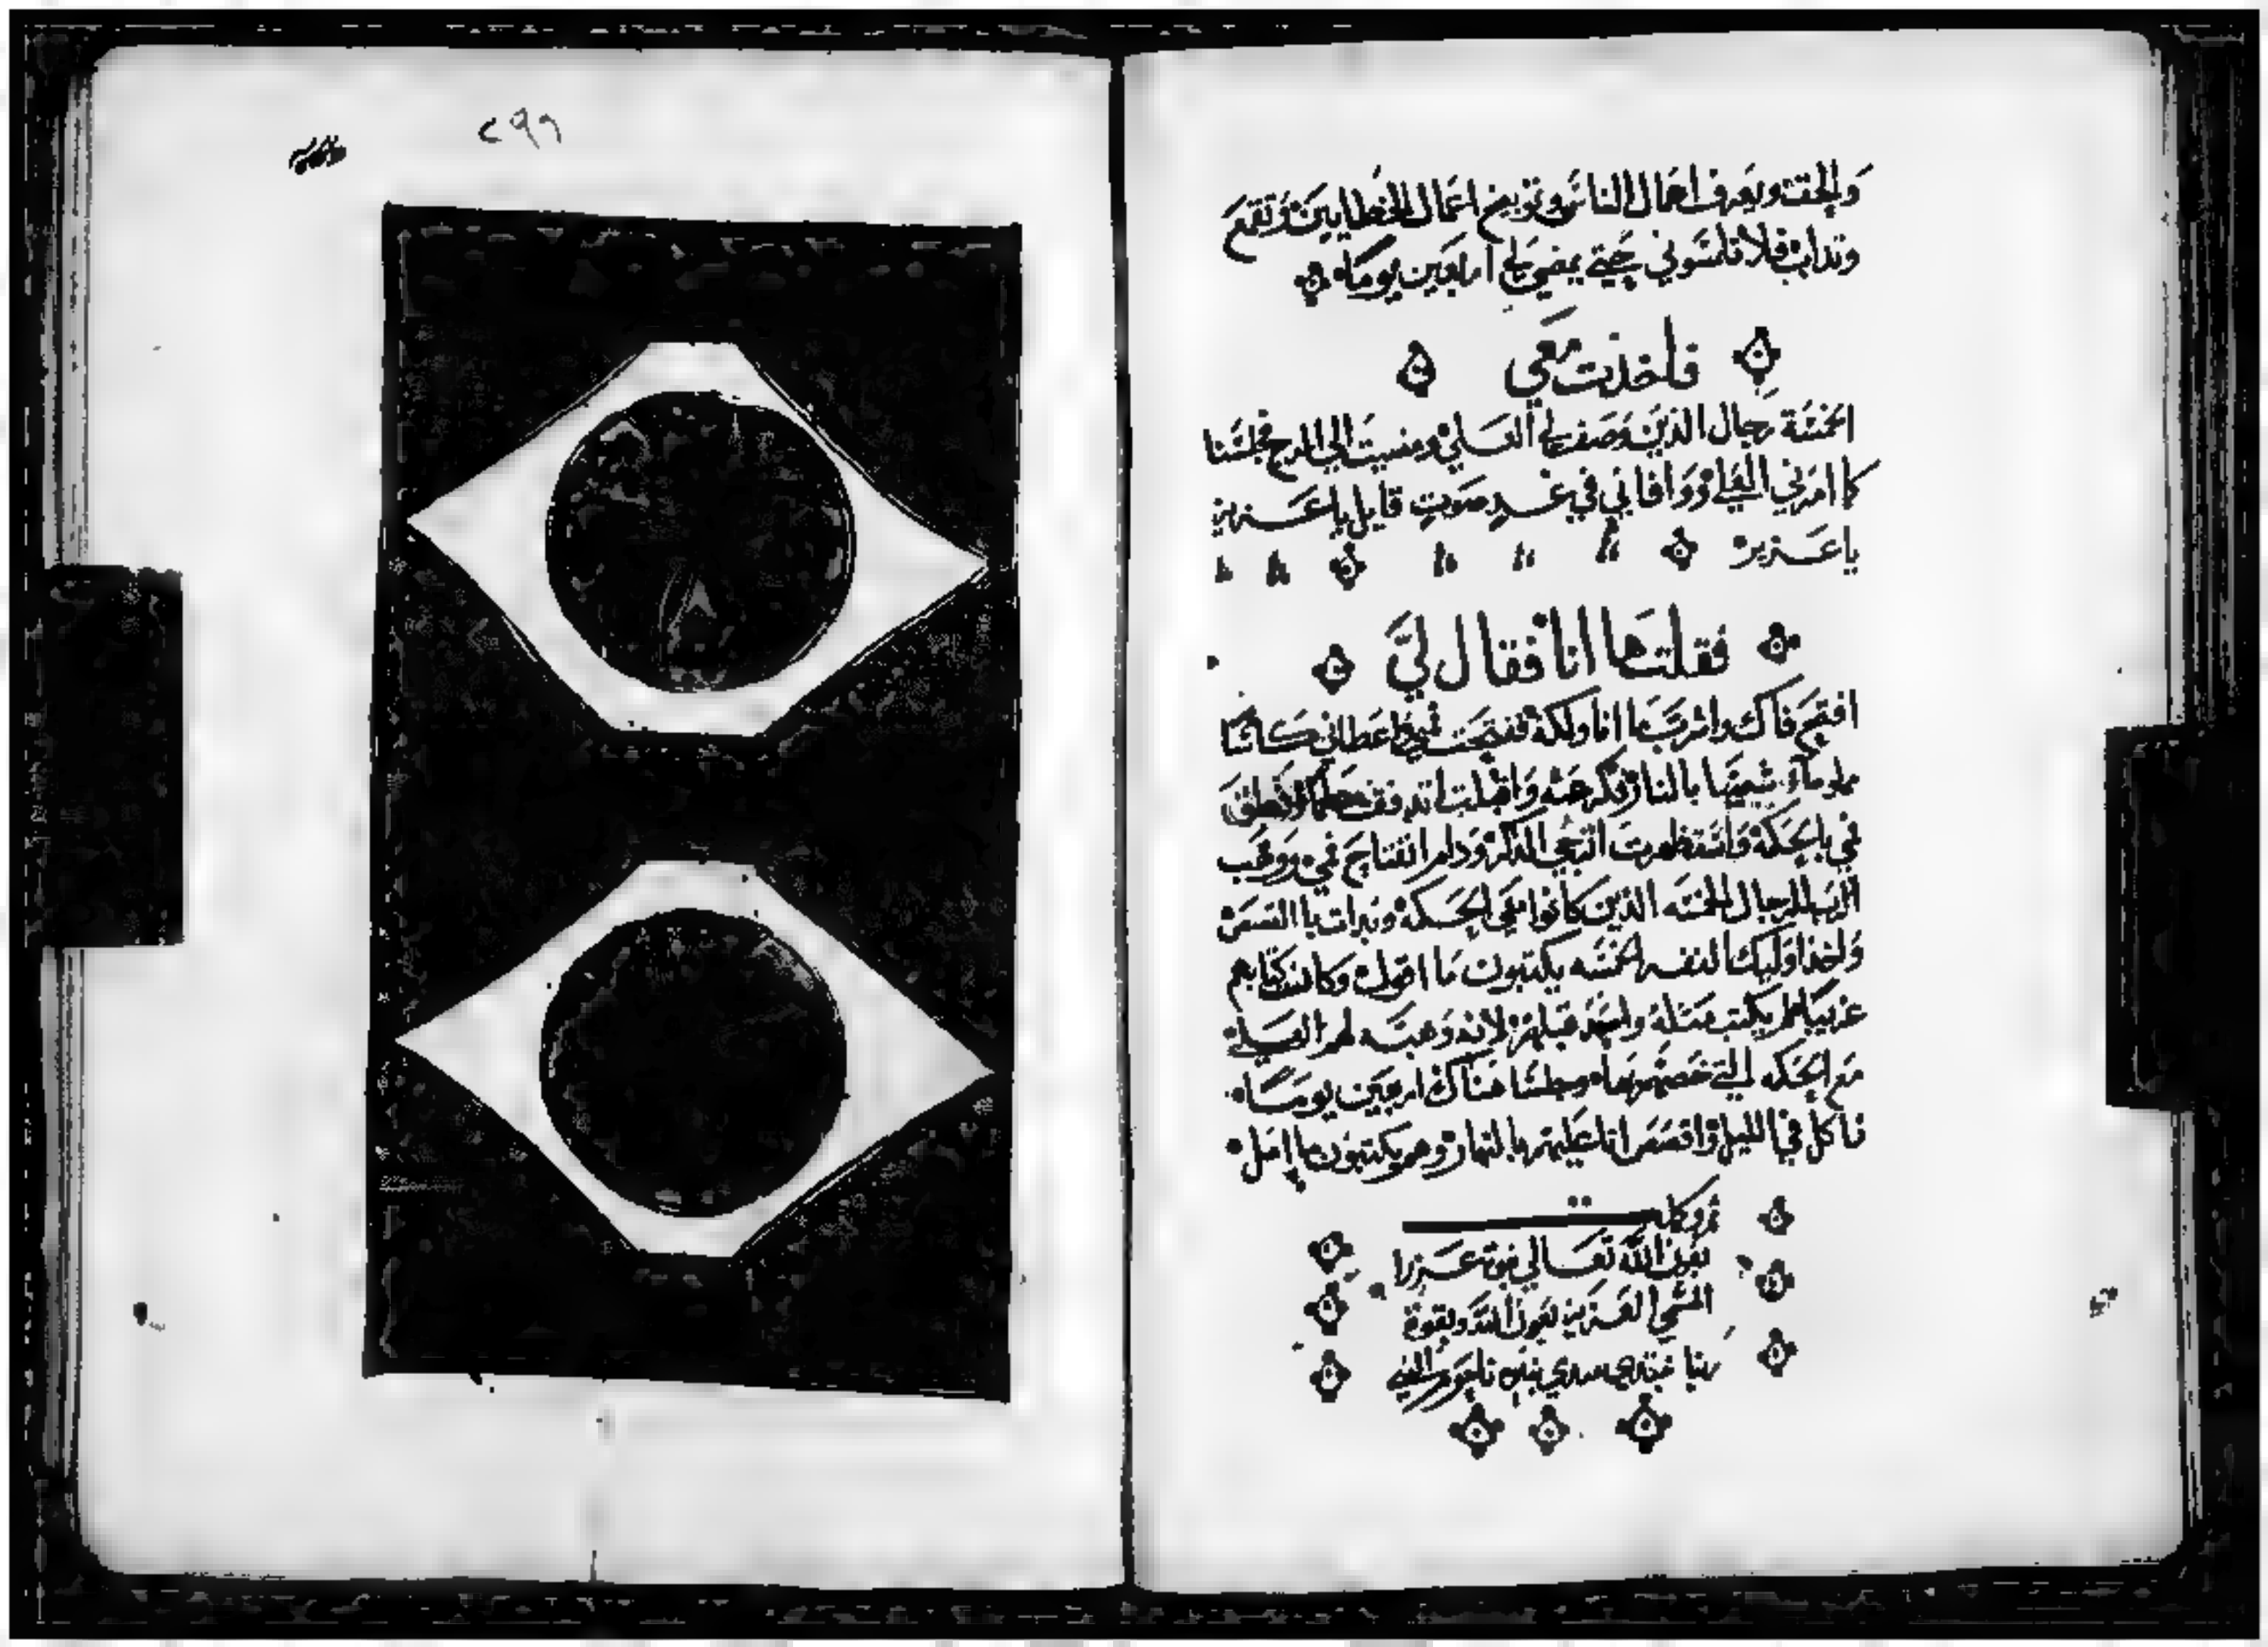 والحق ويعرف اعمال الناس وتوبيخ اعمال الخطايين وتقع
فلا تلتمسوني حتي يمضي اربعين يوما
فاخذت معي
الخمسة رجال الذين وصف لي العلي ومضيت الي المرج فجلسنا
كما امرني العلي ووافاني في غد صوت قايل يا عزيز
يا عزيز
فقلت ها انا فقال لي
افتح فاك واشرب ما اناولكه ففتحت واعطاني كاسا
مملوا ماء شبيها بالنار
في بالحكمة واستظهرت الذكر ودام انفتاح في ووهب
الرب للرجال الخمسه الذين كانوا معي الحكمة وبدات بالتسمر
واخذ اوليك النفر الخمسه يكتبون ما اقول وكان كتابهم
غريبا لم يكتب مثله واحد قبلهم لانه وهبه لهم العلي
مع الحكمه التي خصهم بها وجلسنا هناك اربعين يوما
ناكل في الليل واقصص انا عليهم بالنهار وهم يكتبون ما امل
تم وكمل
بعون الله تعالي نبوة عزرا
المسمي العزيز بعون الله وبقوة
ربنا
٢٩٦